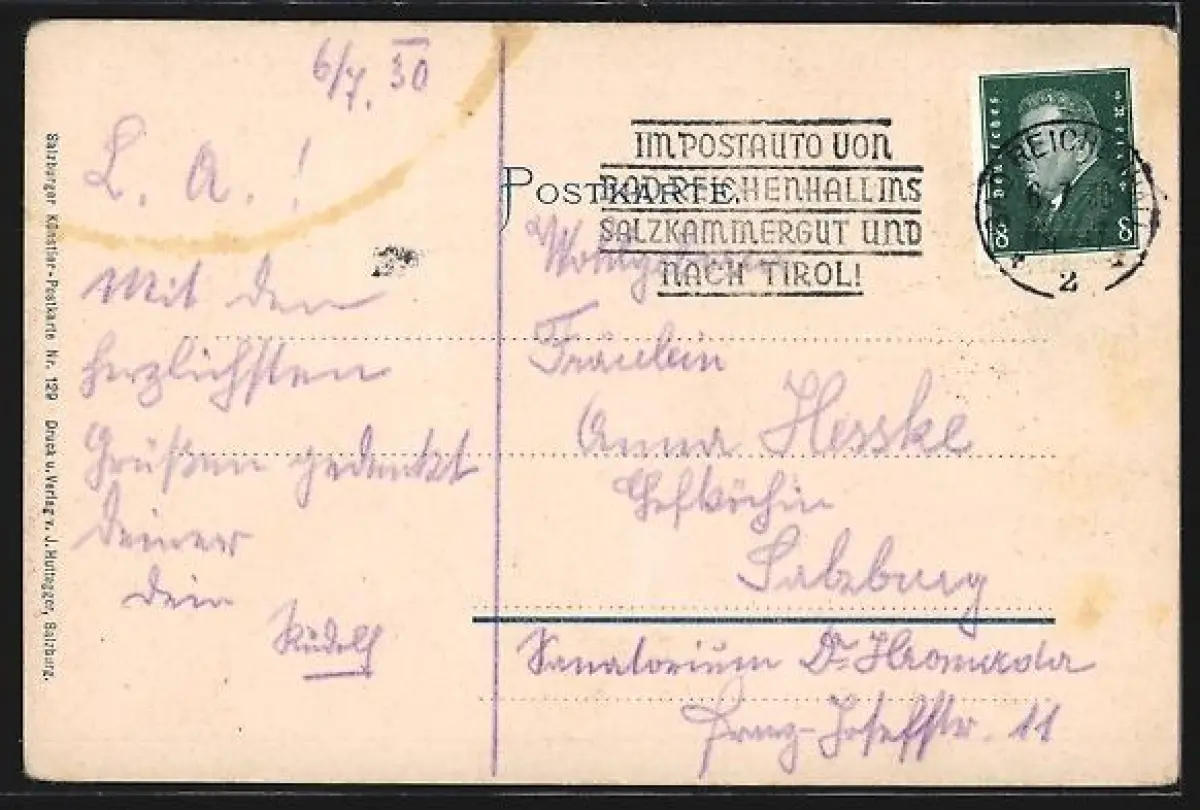 6/7. 30
L. A.!
Mit den
herzlichsten
Grüßen gedenkt
Deiner
Dein
Rudolf
Salzburger Künstler-Postkarte Nr. 129 Druck u. Verlag v. J. Huttegger, Salzburg.
POSTKARTE.
IM POSTAUTO VON
BAD REICHENHALL INS
SALZKAMMERGUT UND
NACH TIROL!
Deutsches Reich
8 8
REICHENHALL
6.7.30
2
Wohlgeboren
Fräulein
Anna Hesske
Chefköchin
Salzburg
Sanatorium Dr
Franz-Josefstr. 11